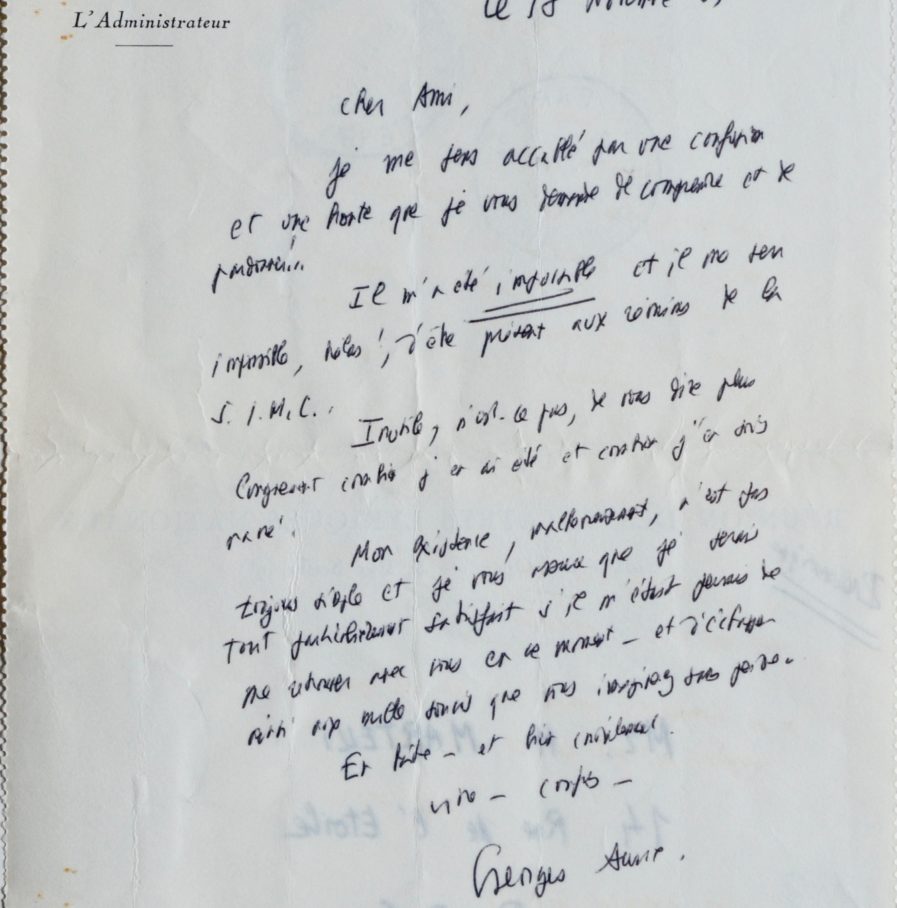 L'Administrateur
le 18
Cher Ami,
Je me sens accablé par une confusion
et une honte que je vous demande de comprendre et de
pardonner...
Il m'a été impossible et il me sera
impossible, hélas !, d'être présent aux réunions de la
S.I.M.C..
Inutile, n'est-ce pas, de vous dire plus
longuement combien j'en ai été et combien j'en suis
navré!
Mon existence, malheureusement, n'est pas
toujours simple et je vous assure que je serais
tout particulièrement satisfait s'il m'était permis de
me retrouver avec vous en ce moment - et d'échapper
ainsi aux mille soucis que vous imaginez sans peine.
En hâte - et bien cordialement.
vôtre -
Georges Auric.